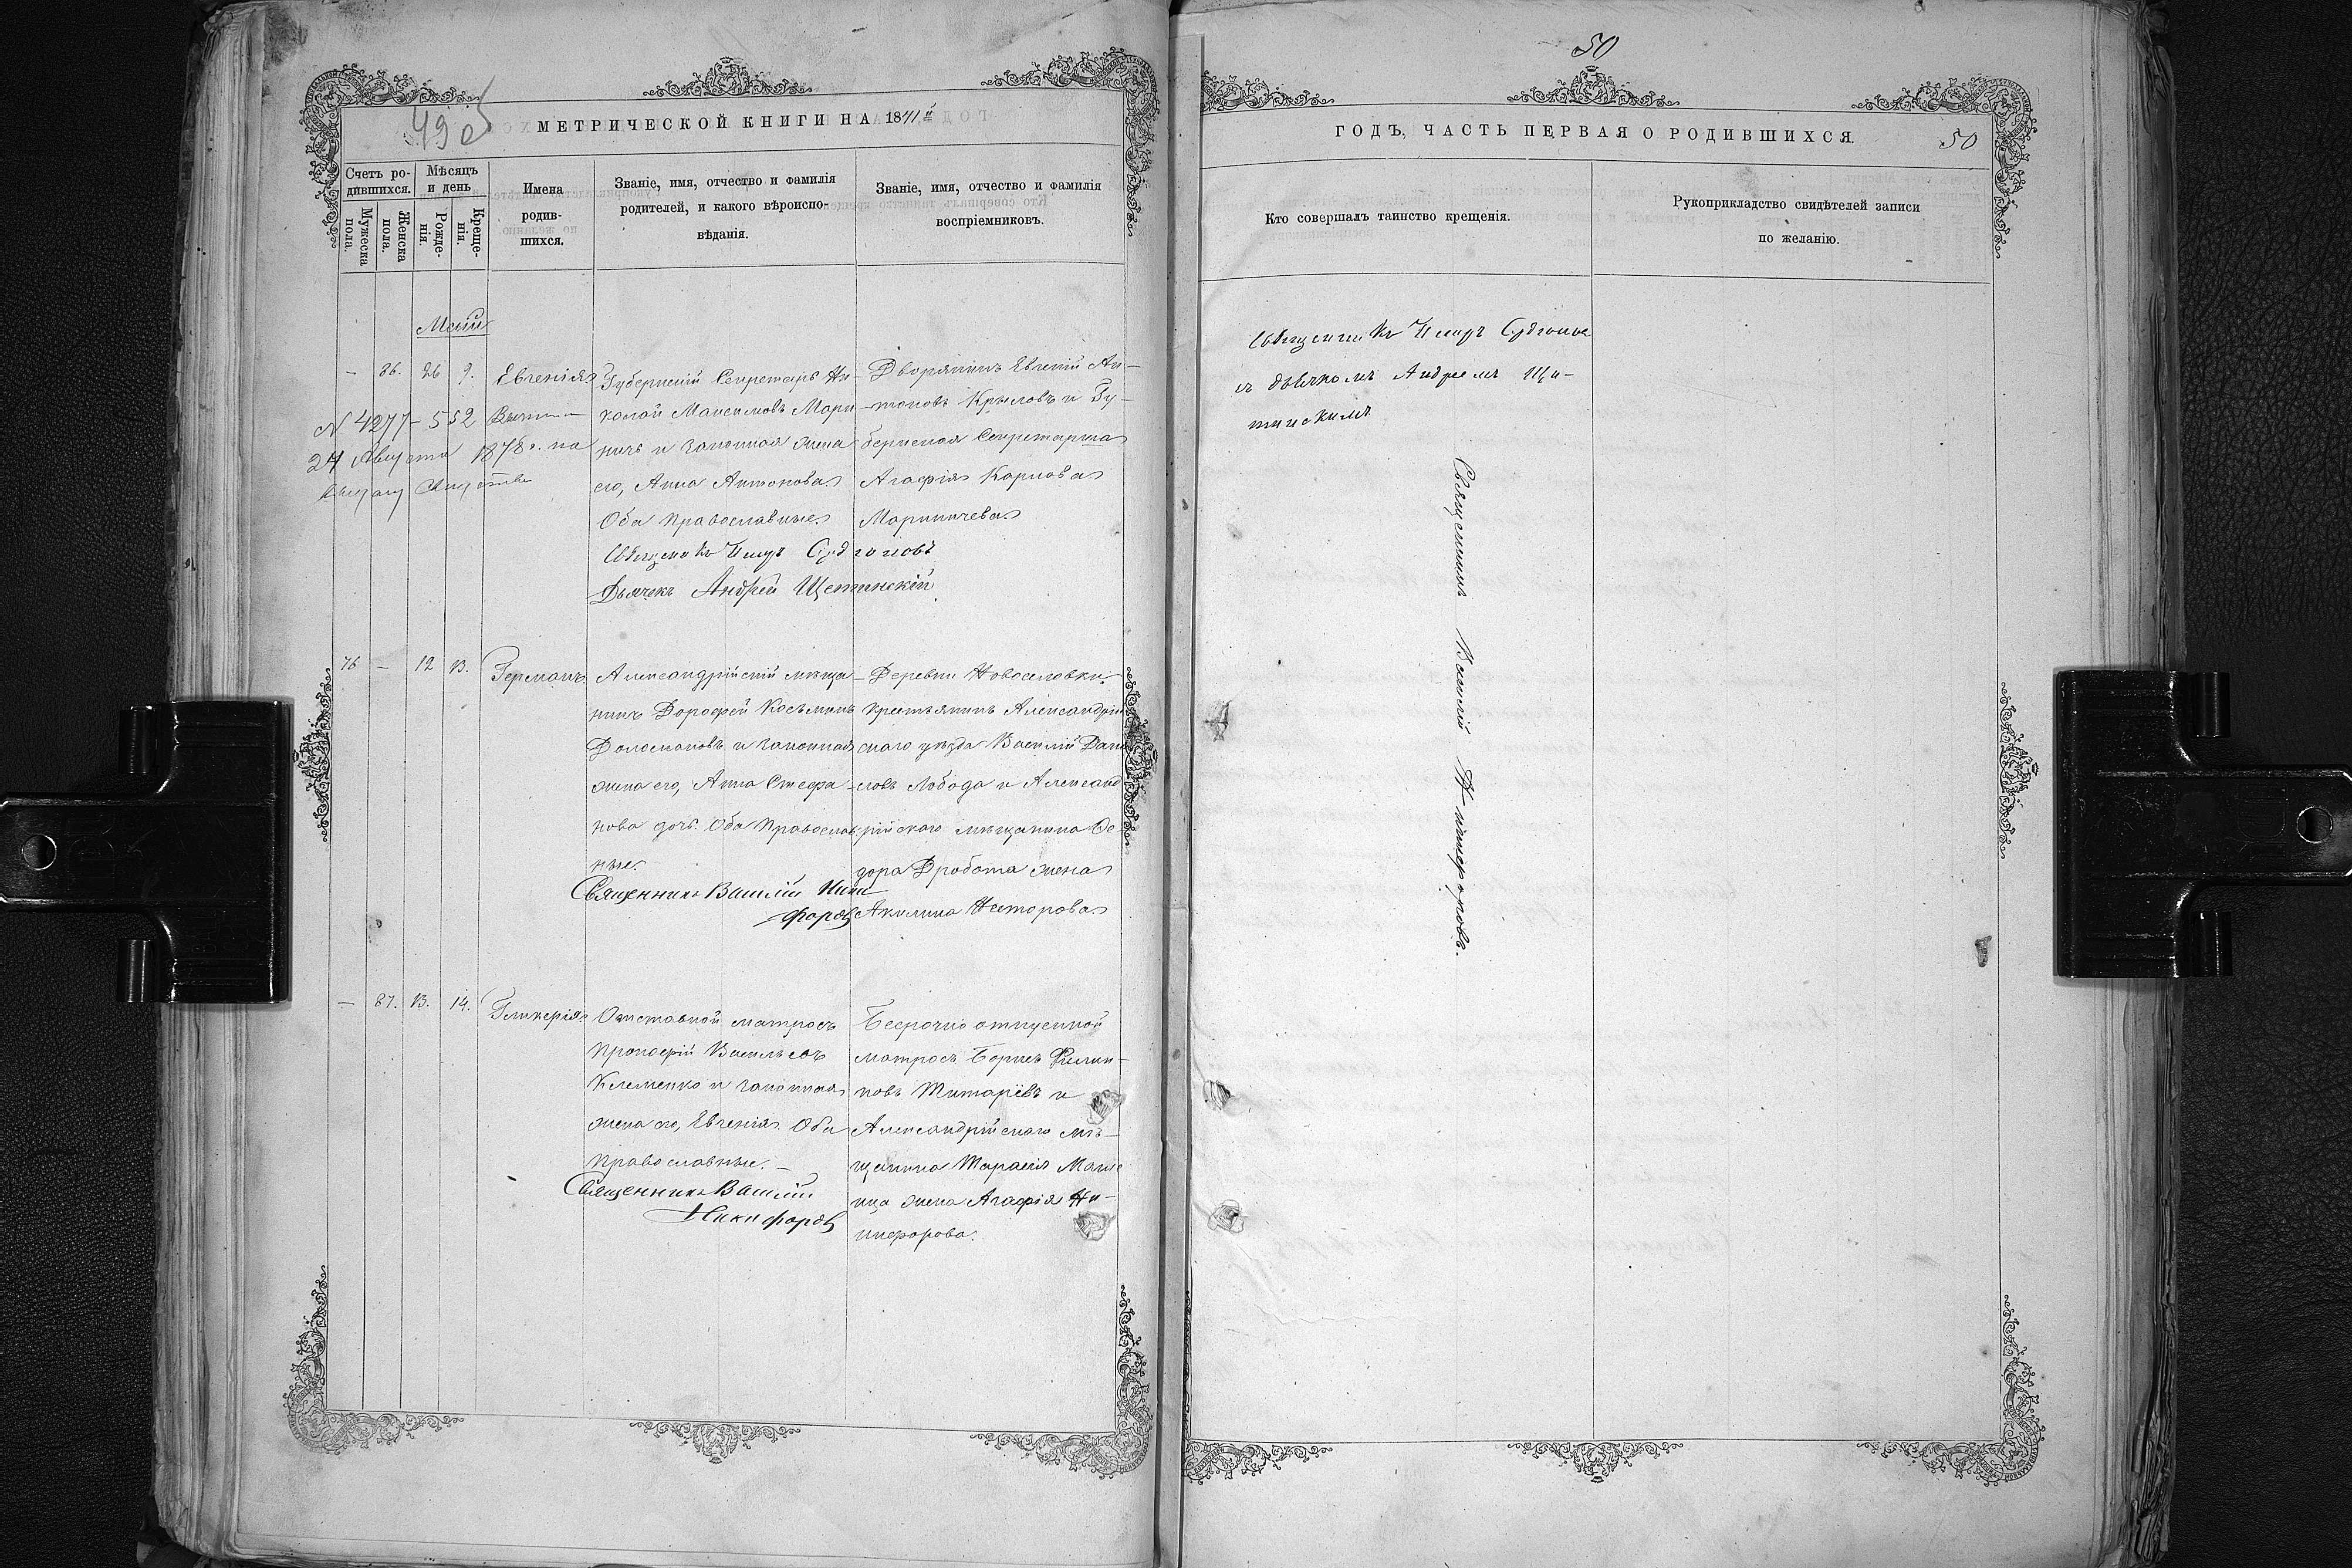 49об
МЕТРИЧЕСКОЙ КНИГИ НА 1871й
Счетъ ро-
дившихся.
Мужеска
пола.
Женска
пола.
Мѣсяцъ
и день
Рожде-
нія.
Креще-
нія.
Имена
родив-
шихся.
Званіе, имя, отчество и фамилія
родителей, и какого вѣроиспо-
вѣданія.
Званіе, имя, отчество и фамилія
воспріемниковъ.
Май
— 86. 26 9. Евгенія
№ 4277-552
24 Августа 1878 г. на
Губернскій Секретарь Ни-
колай Максимовъ Мари-
ничъ и законная жена
его, Анна Антонова.
Оба православные.
Дворянинъ Евгеній Ан-
тоновъ Крыловъ и Гу-
бернская Секретарша
Агафія Карпова
Мариничева.
Дьячекъ Андрей Щетинскій
76 — 12 13. Германъ.
Александрійскій мѣща-
нинъ Дорофей Косьминъ
и законная
жена его, Анна Стефа-
нова дочь. Оба православ-
ные.
Священникъ Василій Ники
форовъ
Деревни Новоселовки
крестьянинъ Александрій
скаго уѣзда Василій Дани
ловъ Лобода и Александ
рійскаго мѣщанина Ѳе
дора Дробота жена
Акилина Нестерова.
— 87. 13. 14. Гликерія
Отставной матросъ
Прокофій Васильевъ
Клеменко и законная
жена его, Евгенія. Оба
православные. —
Священникъ Василій
Никифоровъ
Безсрочно отпускной
матросъ Борисъ Филип-
повъ Титарёвъ и
Александрійскаго мѣ-
щанина Тарасія
жена Агафія Ни-
кифорова.
50
ГОДЪ, ЧАСТЬ ПЕРВАЯ О РОДИВШИХСЯ.
50
Кто совершалъ таинство крещенія.
Рукоприкладство свидѣтелей записи
по желанію.
съ дьячкомъ Андреемъ Ще-
тинскимъ
Священникъ Василій Никифоровъ.